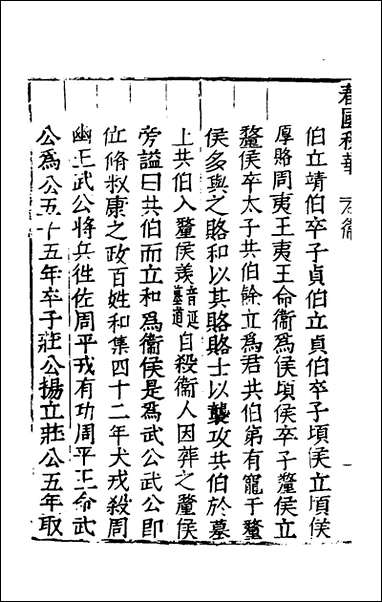 伯立靖伯卒子貞伯立貞伯卒子頃侯立頃侯
厚賂周夷王夷王命衞為侯頃侯卒子釐侯立
釐侯卒太子共伯餘立為君共伯弟有寵于釐
侯多與之賂和以其賂賂士以襲攻共伯於墓
上共伯入釐侯羨音延墓道自殺衞人因葬之釐侯
旁謚曰共伯而立和為衞侯是為武公武公即
位脩叔康之政百姓和集四十二年犬戎殺周
幽王武公將兵徃佐周平戎有功周平王命武
公為公五十五年卒子莊公揚立莊公五年取